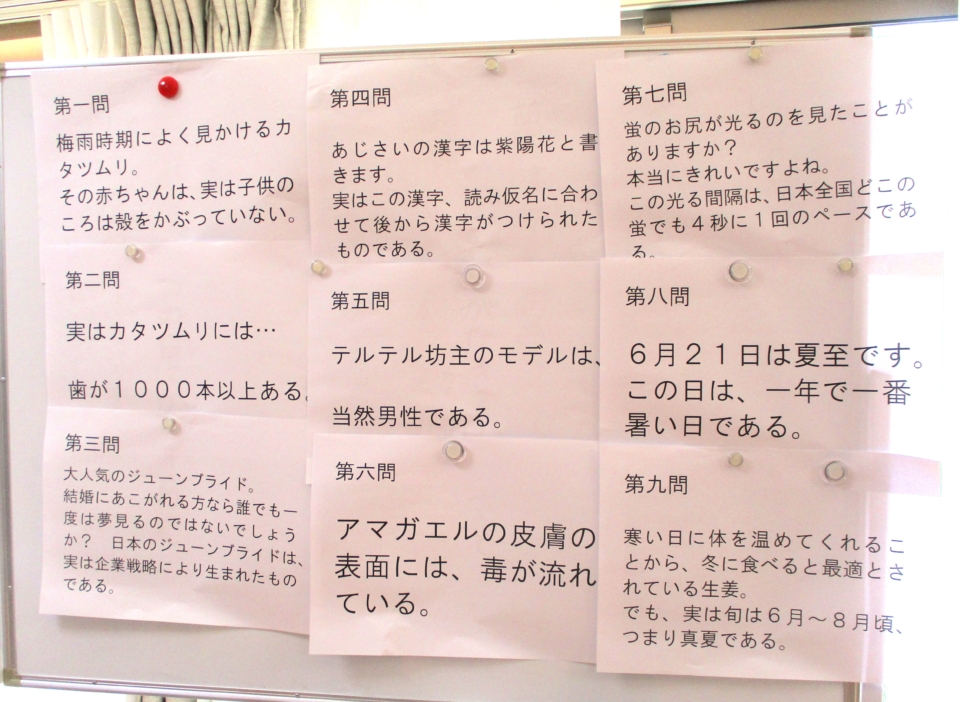 第一問
梅雨時期によく見かけるカ
タツムリ。
その赤ちゃんは、実は子供の
ころは殻をかぶっていない。
第二問
実はカタツムリには…
歯が１０００本以上ある。
第三問
大人気のジューンブライド。
結婚にあこがれる方なら誰でも一
度は夢見るのではないでしょう
か？　日本のジューンブライドは、
実は企業戦略により生まれたもの
である。
第四問
あじさいの漢字は紫陽花と書
きます。
実はこの漢字、読み仮名に合わ
せて後から漢字がつけられた
ものである。
第五問
テルテル坊主のモデルは、
当然男性である。
第六問
アマガエルの皮膚の
表面には、毒が流れ
ている。
第七問
蛍のお尻が光るのを見たことが
ありますか？
本当にきれいですよね。
この光る間隔は、日本全国どこの
蛍でも４秒に１回のペースであ
る。
第八問
６月２１日は夏至です。
この日は、一年で一番
暑い日である。
第九問
寒い日に体を温めてくれるこ
とから、冬に食べると最適とさ
れている生姜。
でも、実は旬は６月～８月頃、
つまり真夏である。